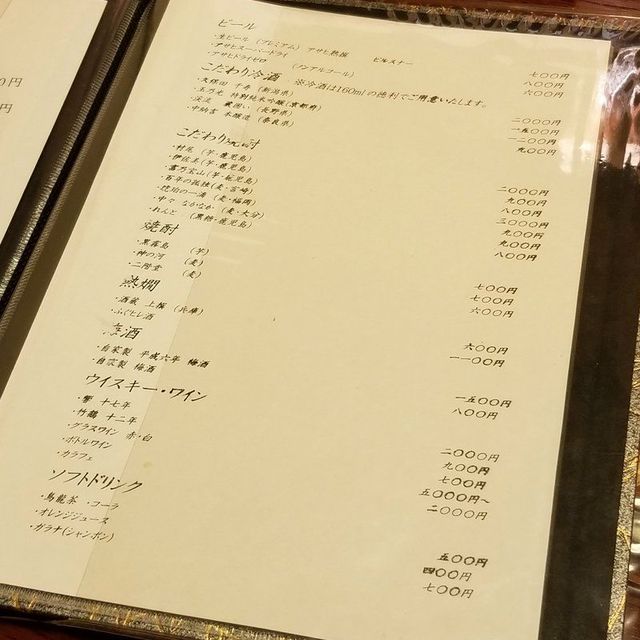 ０円
円
ビール
・生ビール (プレミアム) アサヒ熟撰 ピルスナー 七〇〇円
・アサヒスーパードライ 八〇〇円
・アサヒドライゼロ (ノンアルコール) 六〇〇円
こだわり冷酒 ※冷酒は160mlの徳利でご用意いたします。
・久保田 千寿 (新潟県) 二〇〇〇円
・玉乃光 特別純米吟醸(京都府) 一五〇〇円
・渓流 蔵囲い (長野県) 一二〇〇円
・中納言 本醸造 (奈良県) 九〇〇円
こだわり焼酎
・村尾 (芋・鹿児島) 二〇〇〇円
・伊佐美(芋・鹿児島) 九〇〇円
・富乃宝山(芋・鹿児島) 八〇〇円
・百年の孤独(麦・宮崎) 三〇〇〇円
・琥珀の一滴 (麦・福岡) 九〇〇円
・中々 なかなか (麦・大分) 九〇〇円
・れんと (黒糖・鹿児島) 八〇〇円
焼酎
・黒霧島 (芋) 七〇〇円
・神の河 (麦) 七〇〇円
・二階堂 (麦) 六〇〇円
熱燗
・酒蔵 上撰 (兵庫) 六〇〇円
・ふぐヒレ酒 一一〇〇円
酒
・自家製 平成六年 梅酒 一五〇〇円
・自家製 梅酒 八〇〇円
ウイスキー・ワイン
・響 十七年 二〇〇〇円
・竹鶴 十二年 九〇〇円
・グラスワイン 赤・白 七〇〇円
・ボトルワイン 五〇〇〇円～
・カラフェ 二〇〇〇円
ソフトドリンク
・烏龍茶 ・コーラ 五〇〇円
・オレンジジュース 四〇〇円
・ガラナ(シャンポン) 七〇〇円